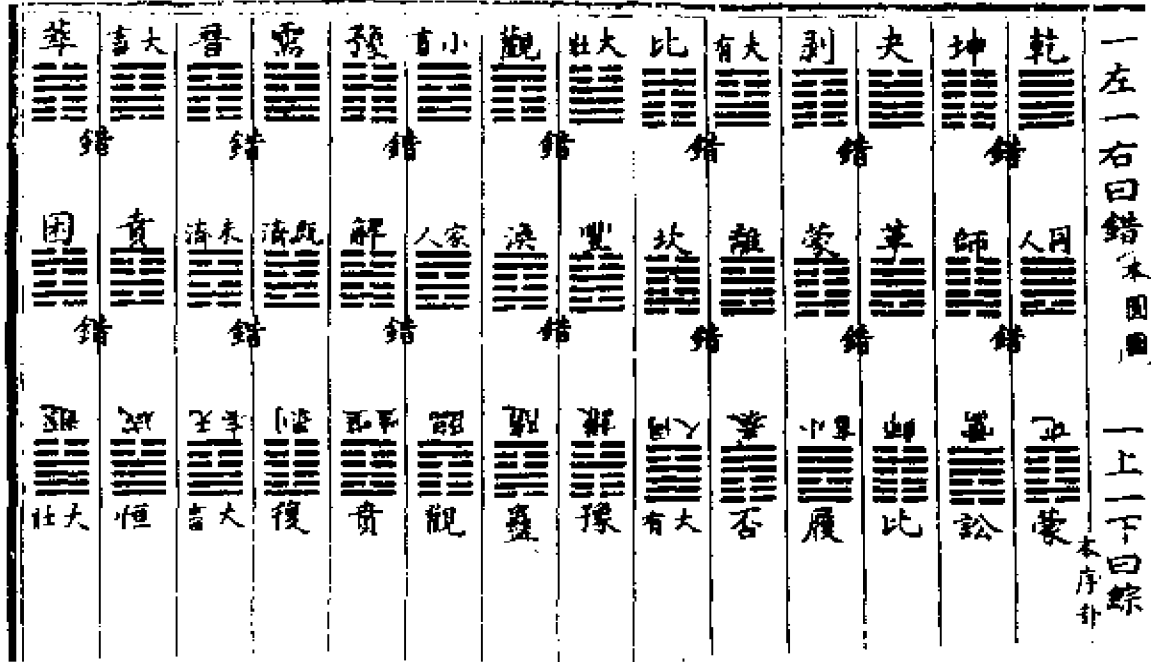 一左一右曰錯 本圓圖
乾 坤 夬 剥 大有 比 大壯 觀 小畜 豫 需 晉 大畜 萃
錯 錯 錯 錯 錯 錯 錯
同人 師 革 蒙 離 坎 豐 渙 家人 解 既濟 未濟 賁 困
錯 錯 錯 錯 錯 錯 錯
一上一下曰綜 本序卦
屯 需 師 小畜 泰 同人 謙 隨 臨 噬嗑 剥 无妄 咸 遯
蒙 訟 比 履 否 大有 豫 蠱 觀 賁 復 大畜 恒 大壯